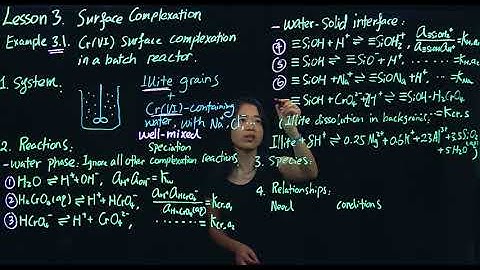 Lesson 3. Surface Complexation
Example 3.1. Cr(VI) Surface complexation
in a batch reactor.
1. System:
Illite grains
+
Cr(VI)-containing
water, with Na, Cl
well-mixed
2. Reactions: Speciation
-water phase: Ignore all other complexation reactions
① H₂O ⇌ H⁺+OH⁻, a_H⁺ a_OH⁻ = K_w
② H₂CrO₄(aq) ⇌ H⁺+ HCrO₄⁻, a_H⁺ a_HCrO₄⁻ / a_H₂CrO₄(aq) = K_Cr,a₁
③ HCrO₄⁻ ⇌ H⁺+ CrO₄²⁻, ........ = K_Cr,a₂
- water-solid interface:
④ ≡SiOH + H⁺ ⇌ ≡SiOH₂⁺,
⑤ ≡SiOH ⇌ ≡SiO⁻+H⁺,
⑥ ≡SiOH + Na⁺ ⇌ ≡SiONa +H⁺,
≡SiOH + CrO₄²⁻ + H⁺ ⇌ ≡SiOH-H₂CrO₄
(Illite dissolution in background:
Illite + 8H⁺ ⇌ 0.25 Mg²⁺ + 0.6K⁺ + 2.3Al³⁺ + 3.5SiO₂(aq)
+5H₂O
3. Species:
4. Relationships:
Need conditions